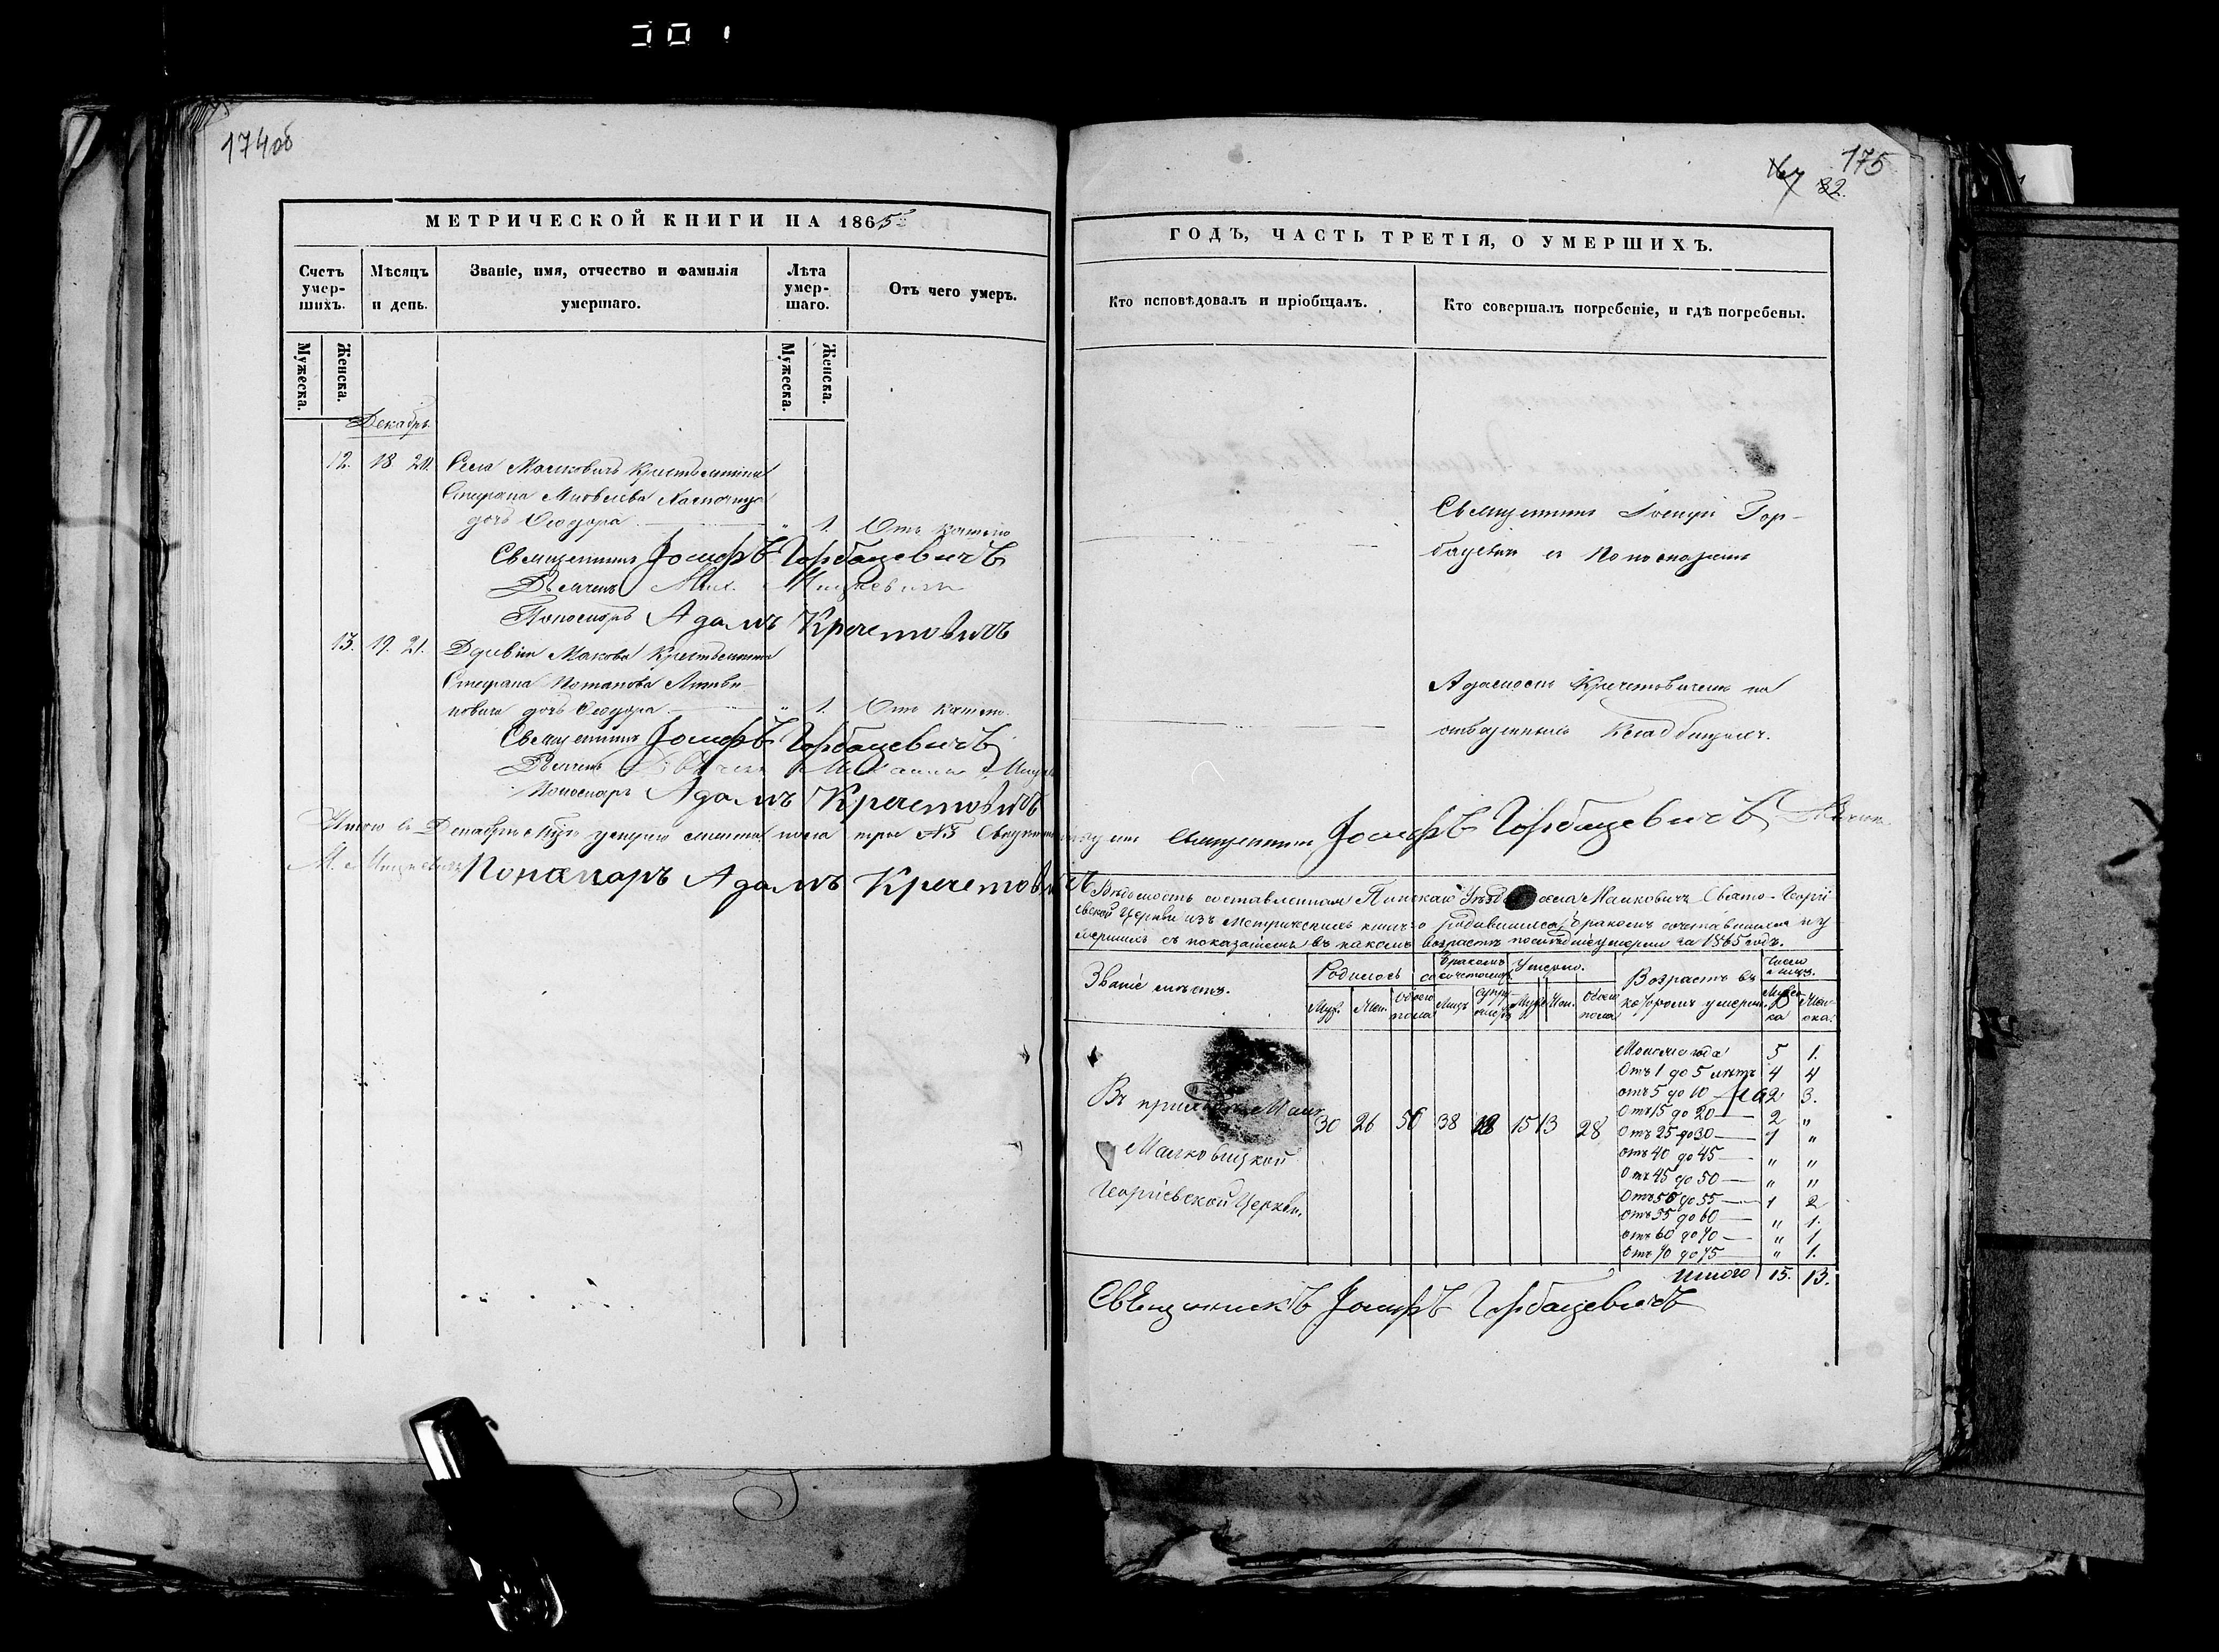 301
174об
МЕТРИЧЕСКОЙ КНИГИ НА 1865
Счетъ умер-шихъ.
Мѣсяцъ и день.
Званіе, имя, отчество и фамилія умершаго.
Лѣта умер-шаго.
Отъ чего умеръ.
Мужеска.
Женска.
Мужеска.
Женска.
Декабрь
12. 18 20. Села Малковичъ Крестьянина
Стефана
дочь Ѳеодора " 1. Отъ кашлю
Священникъ Іосифъ Горбацевичъ
Дьячекъ Мих. Мицкевичъ
Пономарь Адамъ Кречетовичъ
13. 19. 21. Деревни Макова Крестьянина
Стефана Потапова Литви-
новича дочь Ѳеодора " 1. Отъ кашлю
Священникъ Іосифъ Горбацевичъ
Дьячекъ
Пономарь Адамъ Кречетовичъ
Итого въ Декабрѣ
М. Мицкевичъ Пономарь Адамъ Кречетовичъ
175
32.
ГОДЪ, ЧАСТЬ ТРЕТІЯ, О УМЕРШИХЪ.
Кто исповѣдовалъ и пріобщалъ.
Кто совершалъ погребеніе, и гдѣ погребены.
Священникъ Іосифъ Гор-
бацевичъ съ Пономаремъ
Адамомъ Кречетовичемъ на
отведенныхъ Кладбищахъ.
Священникъ Іосифъ Горбацевичъ
Вѣдомость составленная Пинскаго Уѣзда села Малковичъ Свято-Георгі-
евской Церкви изъ Метрическихъ книгъ о родившихся, бракомъ сочетавшихся и у
мершихъ съ показаніемъ въ какомъ возрастѣ послѣдніе умерли за 1865 годъ.
Званіе мѣстъ.
Родилось
Бракомъ сочеталось
Умерло.
Возрастъ въ
которомъ умерли.
Число лицъ.
Муж. Жен. Обоего пола
Муж. Жен. Обоего пола
Мужес-ка Жен-ска.
Въ приходѣ
Малковицкой
Георгіевской Церкви.
30 26 56 38 15 13 28
Моложе года 5 1.
Отъ 1 до 5 лѣтъ 4 4
отъ 5 до 10 2 3.
Отъ 15 до 20 2 "
Отъ 25 до 30 1 "
отъ 40 до 45 " "
Отъ 45 до 50 " "
Отъ 50 до 55 1 2
отъ 55 до 60 " 1.
отъ 60 до 70 " 1.
Отъ 70 до 75 " 1.
Итого 15. 13.
Священникъ Іосифъ Горбацевичъ